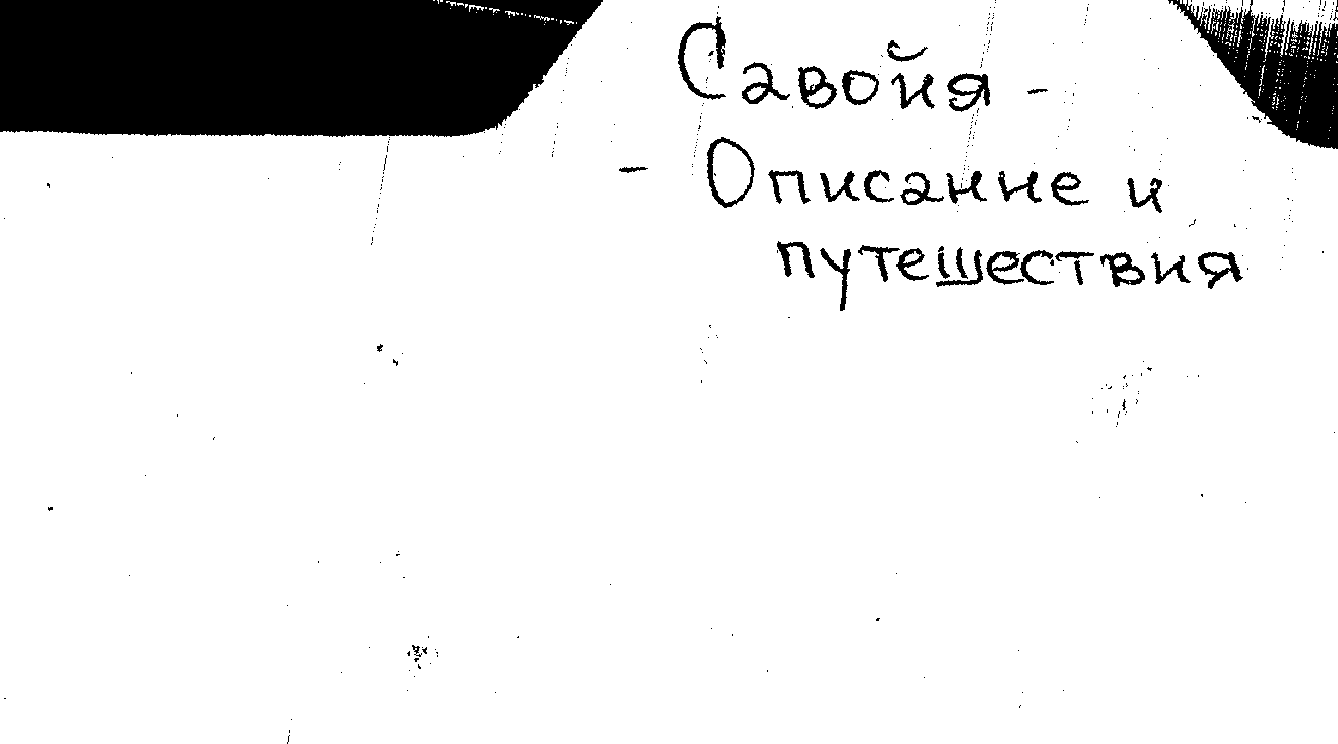 Савойя -
- Описание и
путешествия